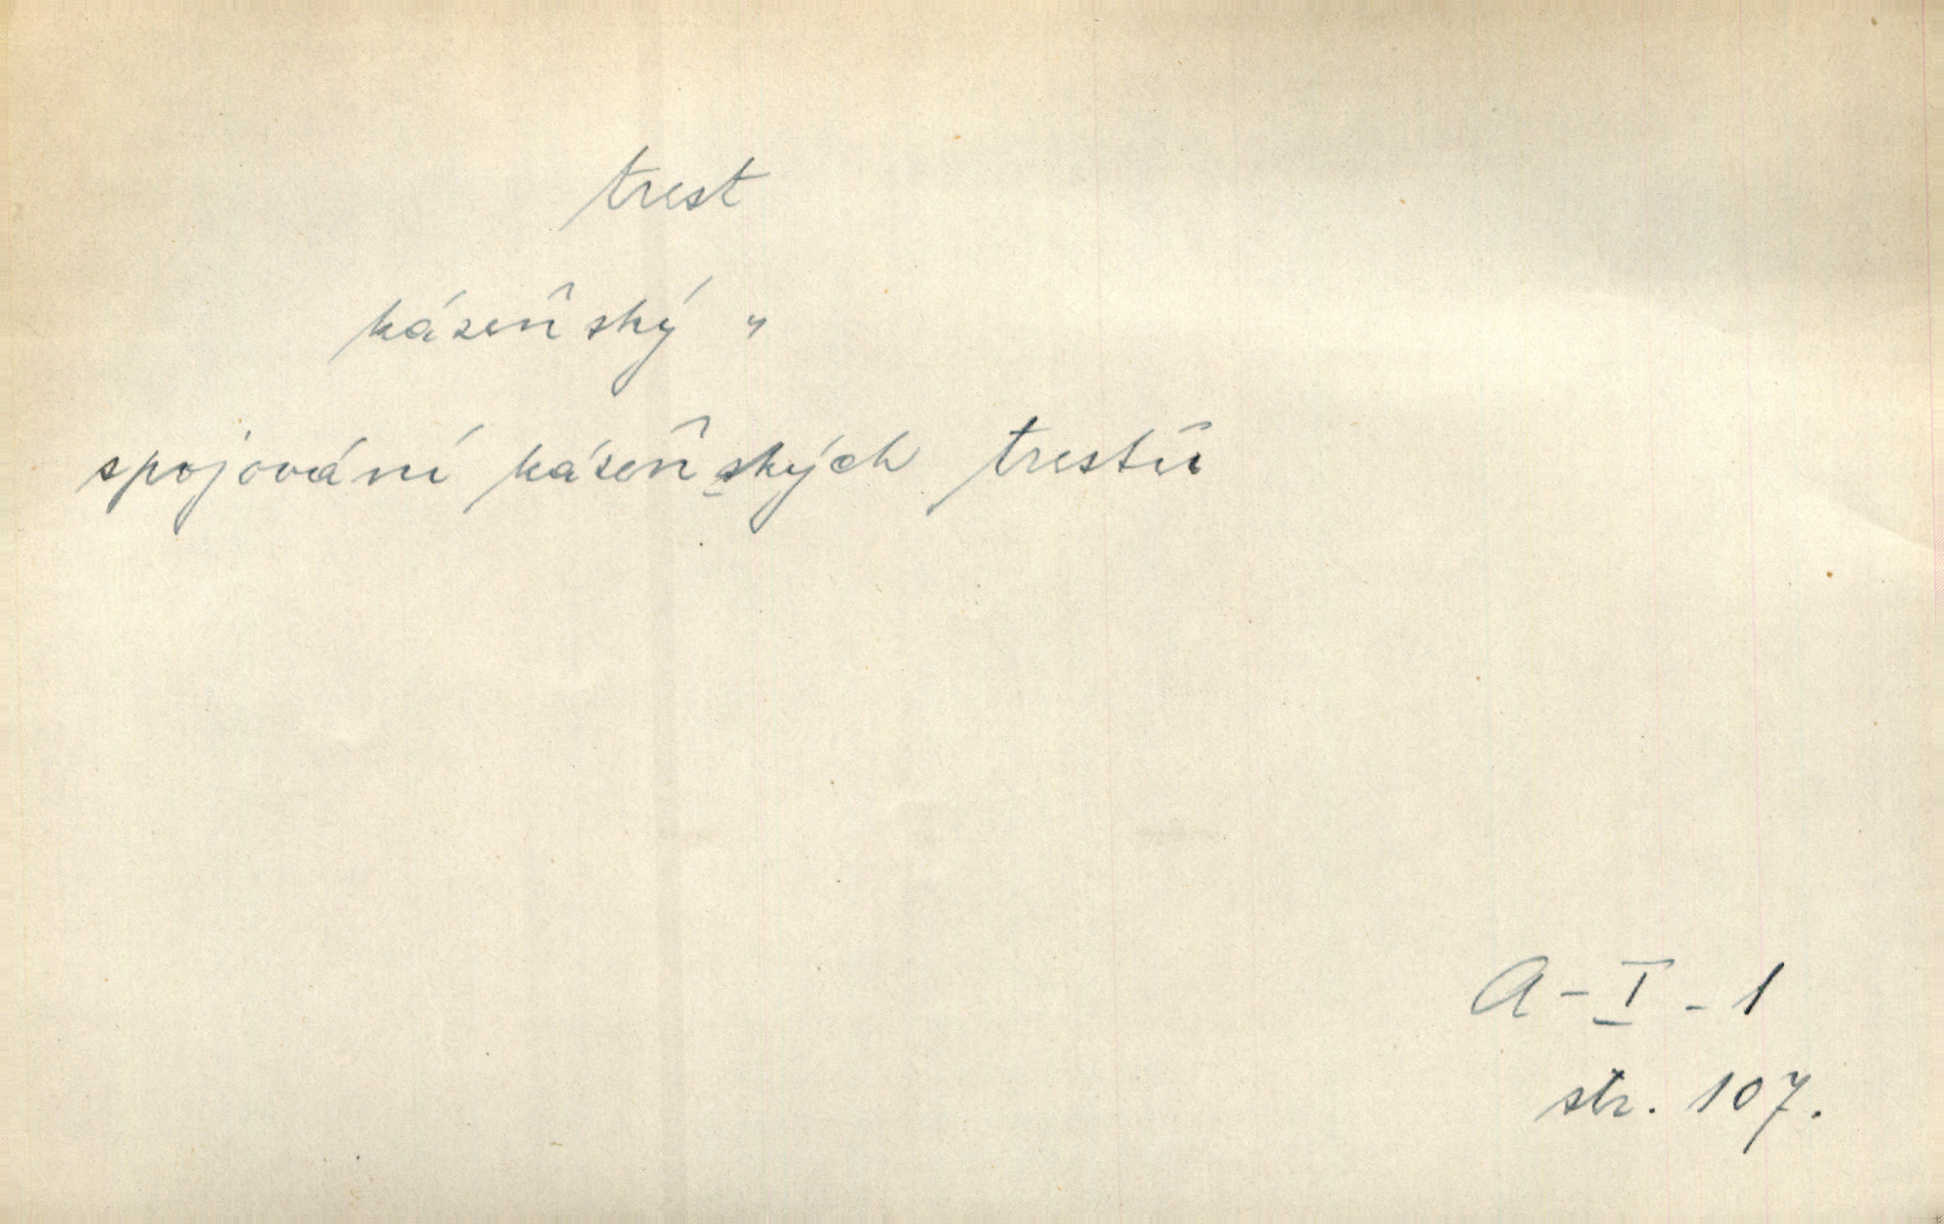 trest
kázeňský "
spojování kázeňských trestů
A - I - 1
str. 107.